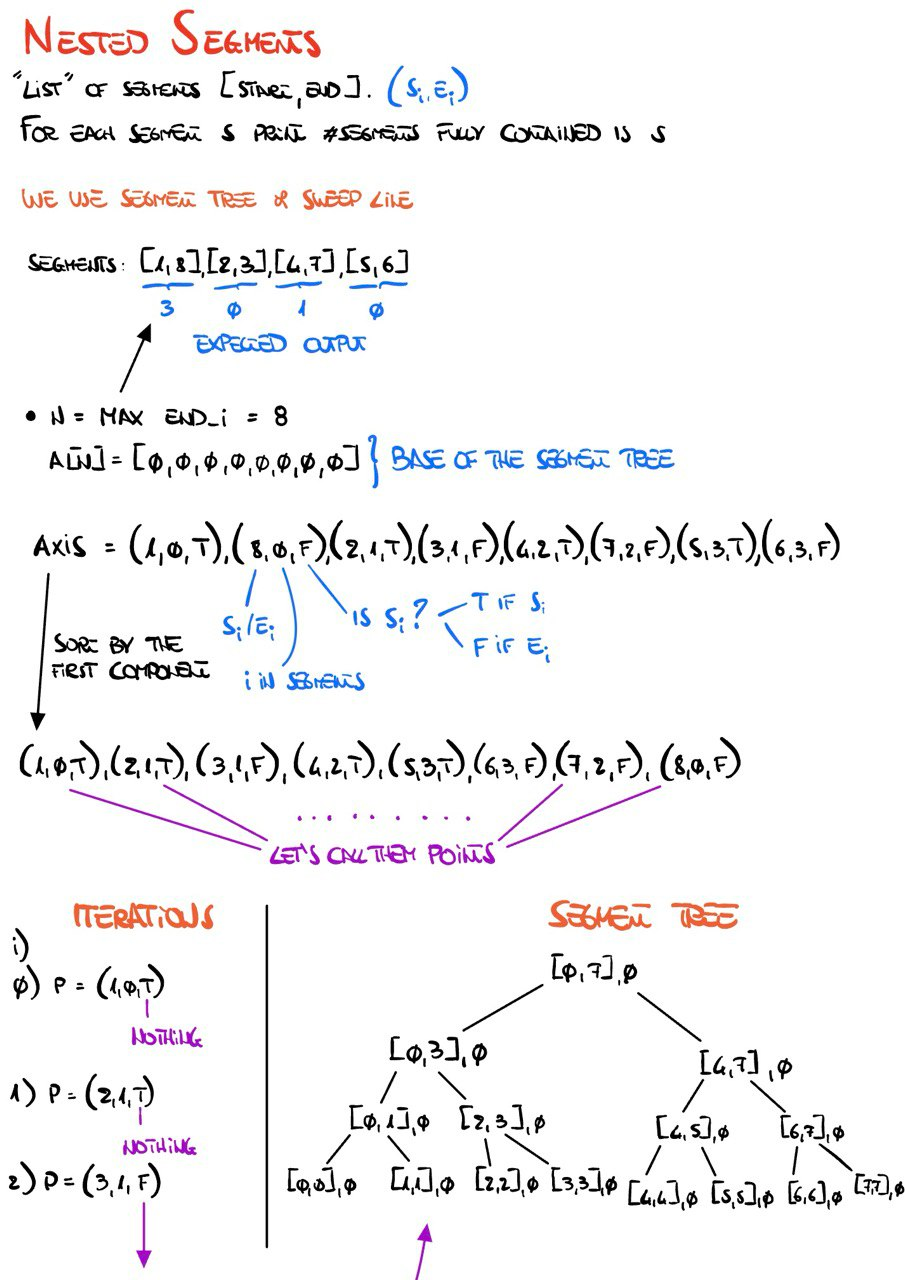 NESTED SEGMENTS
"LIST" OF SEGMENTS [START, END]. (Si, Ei)
FOR EACH SEGMENT S PRINT #SEGMENTS FULLY CONTAINED IS S
WE USE SEGMENT TREE & SWEEP LINE
SEGMENTS: [1,8],[2,3],[4,7],[5,6]
3 0 1 0
EXPECTED OUTPUT
• N = MAX END_i = 8
A[N] = [0,0,0,0,0,0,0,0] } BASE OF THE SEGMENT TREE
AXIS = (1,0,T),(8,0,F),(2,1,T),(3,1,F),(4,2,T),(7,2,F),(5,3,T),(6,3,F)
Si/Ei
i IN SEGMENTS
IS Si?
T IF Si
F IF Ei
SORT BY THE
FIRST COMPONENT
(1,0,T),(2,1,T),(3,1,F),(4,2,T),(5,3,T),(6,3,F),(7,2,F),(8,0,F)
LET'S CALL THEM POINTS
ITERATIONS
i)
0) P = (1,0,T)
NOTHING
1) P = (2,1,T)
NOTHING
2) P = (3,1,F)
SEGMENT TREE
[0,7],0
[0,3],0 [4,7],0
[0,1],0 [2,3],0 [4,5],0 [6,7],0
[0,0],0 [1,1],0 [2,2],0 [3,3],0 [4,4],0 [5,5],0 [6,6],0 [7,7],0